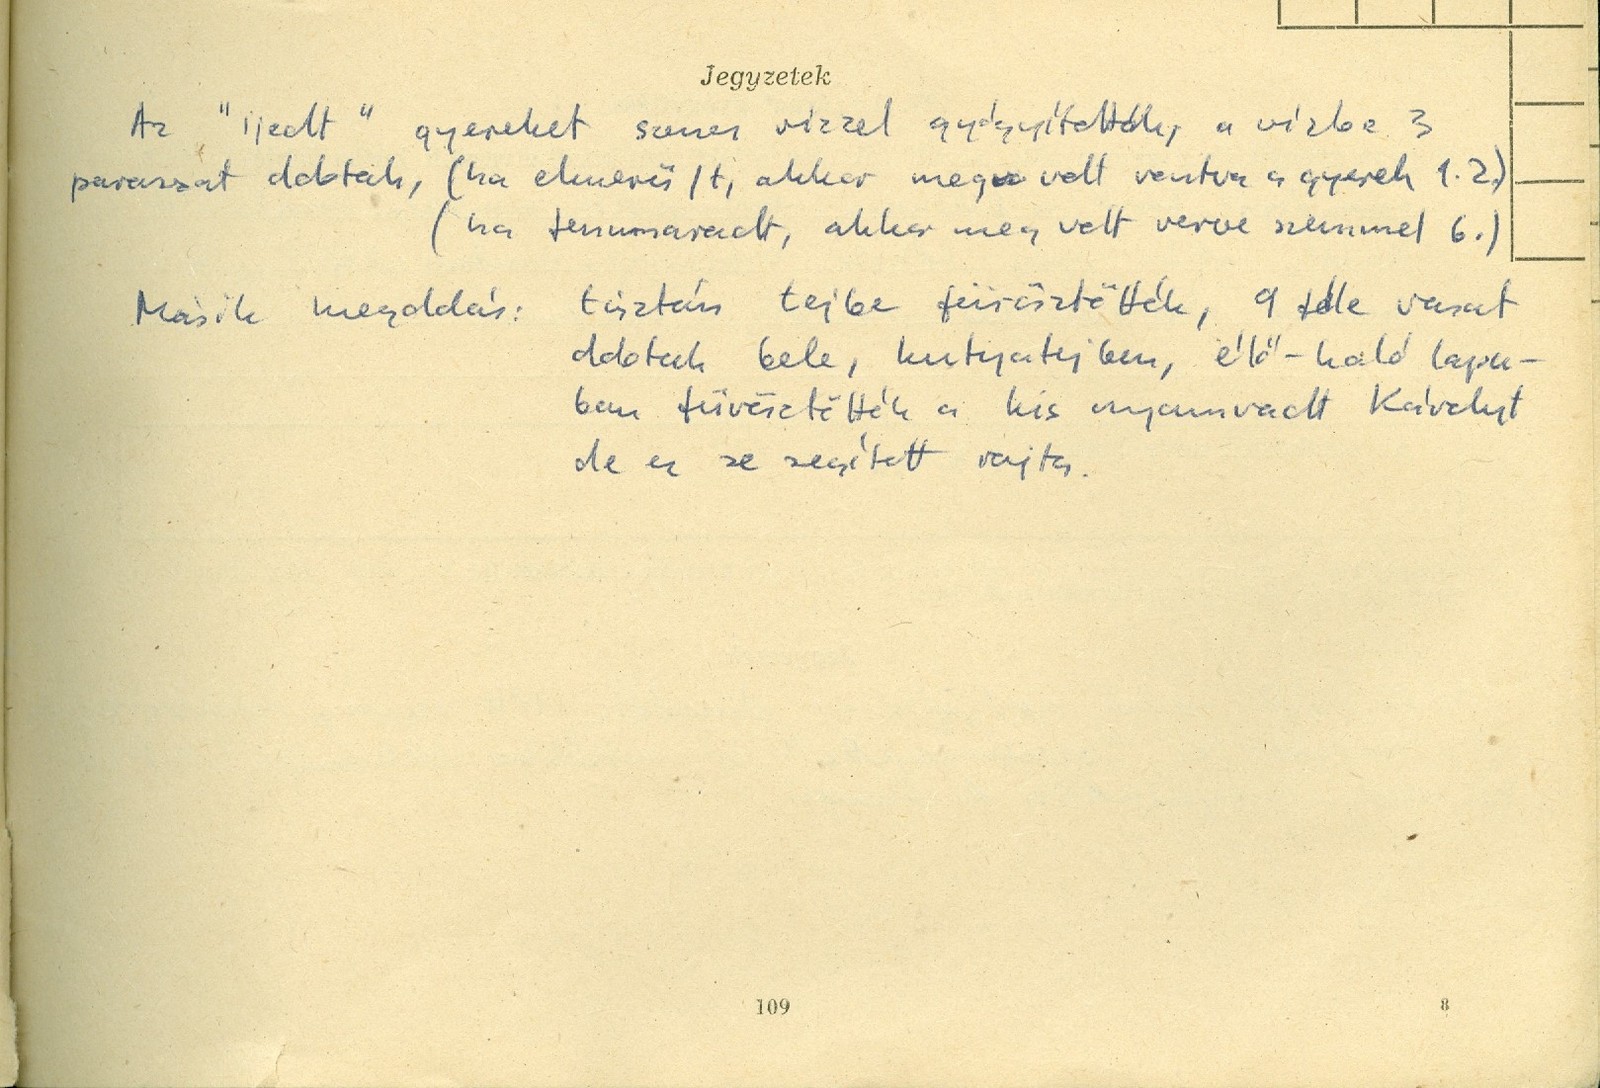 Jegyzetek
Az "ijedt" gyereket szenes vízzel gyógyították, a vízbe 3
parazsat dobtak, (ha elmerült, akkor meg volt rontva a gyerek 1.2.)
(ha fennmaradt, akkor meg volt verve szemmel 6.)
Másik megoldás: tisztán tejbe fürösztötték, 9 féle vasat
dobtak bele, kutyatejben, élő-haló lapu-
ban fürösztötték a kis nyamvadt Károlyt
de ez se segített rajta.
109
8